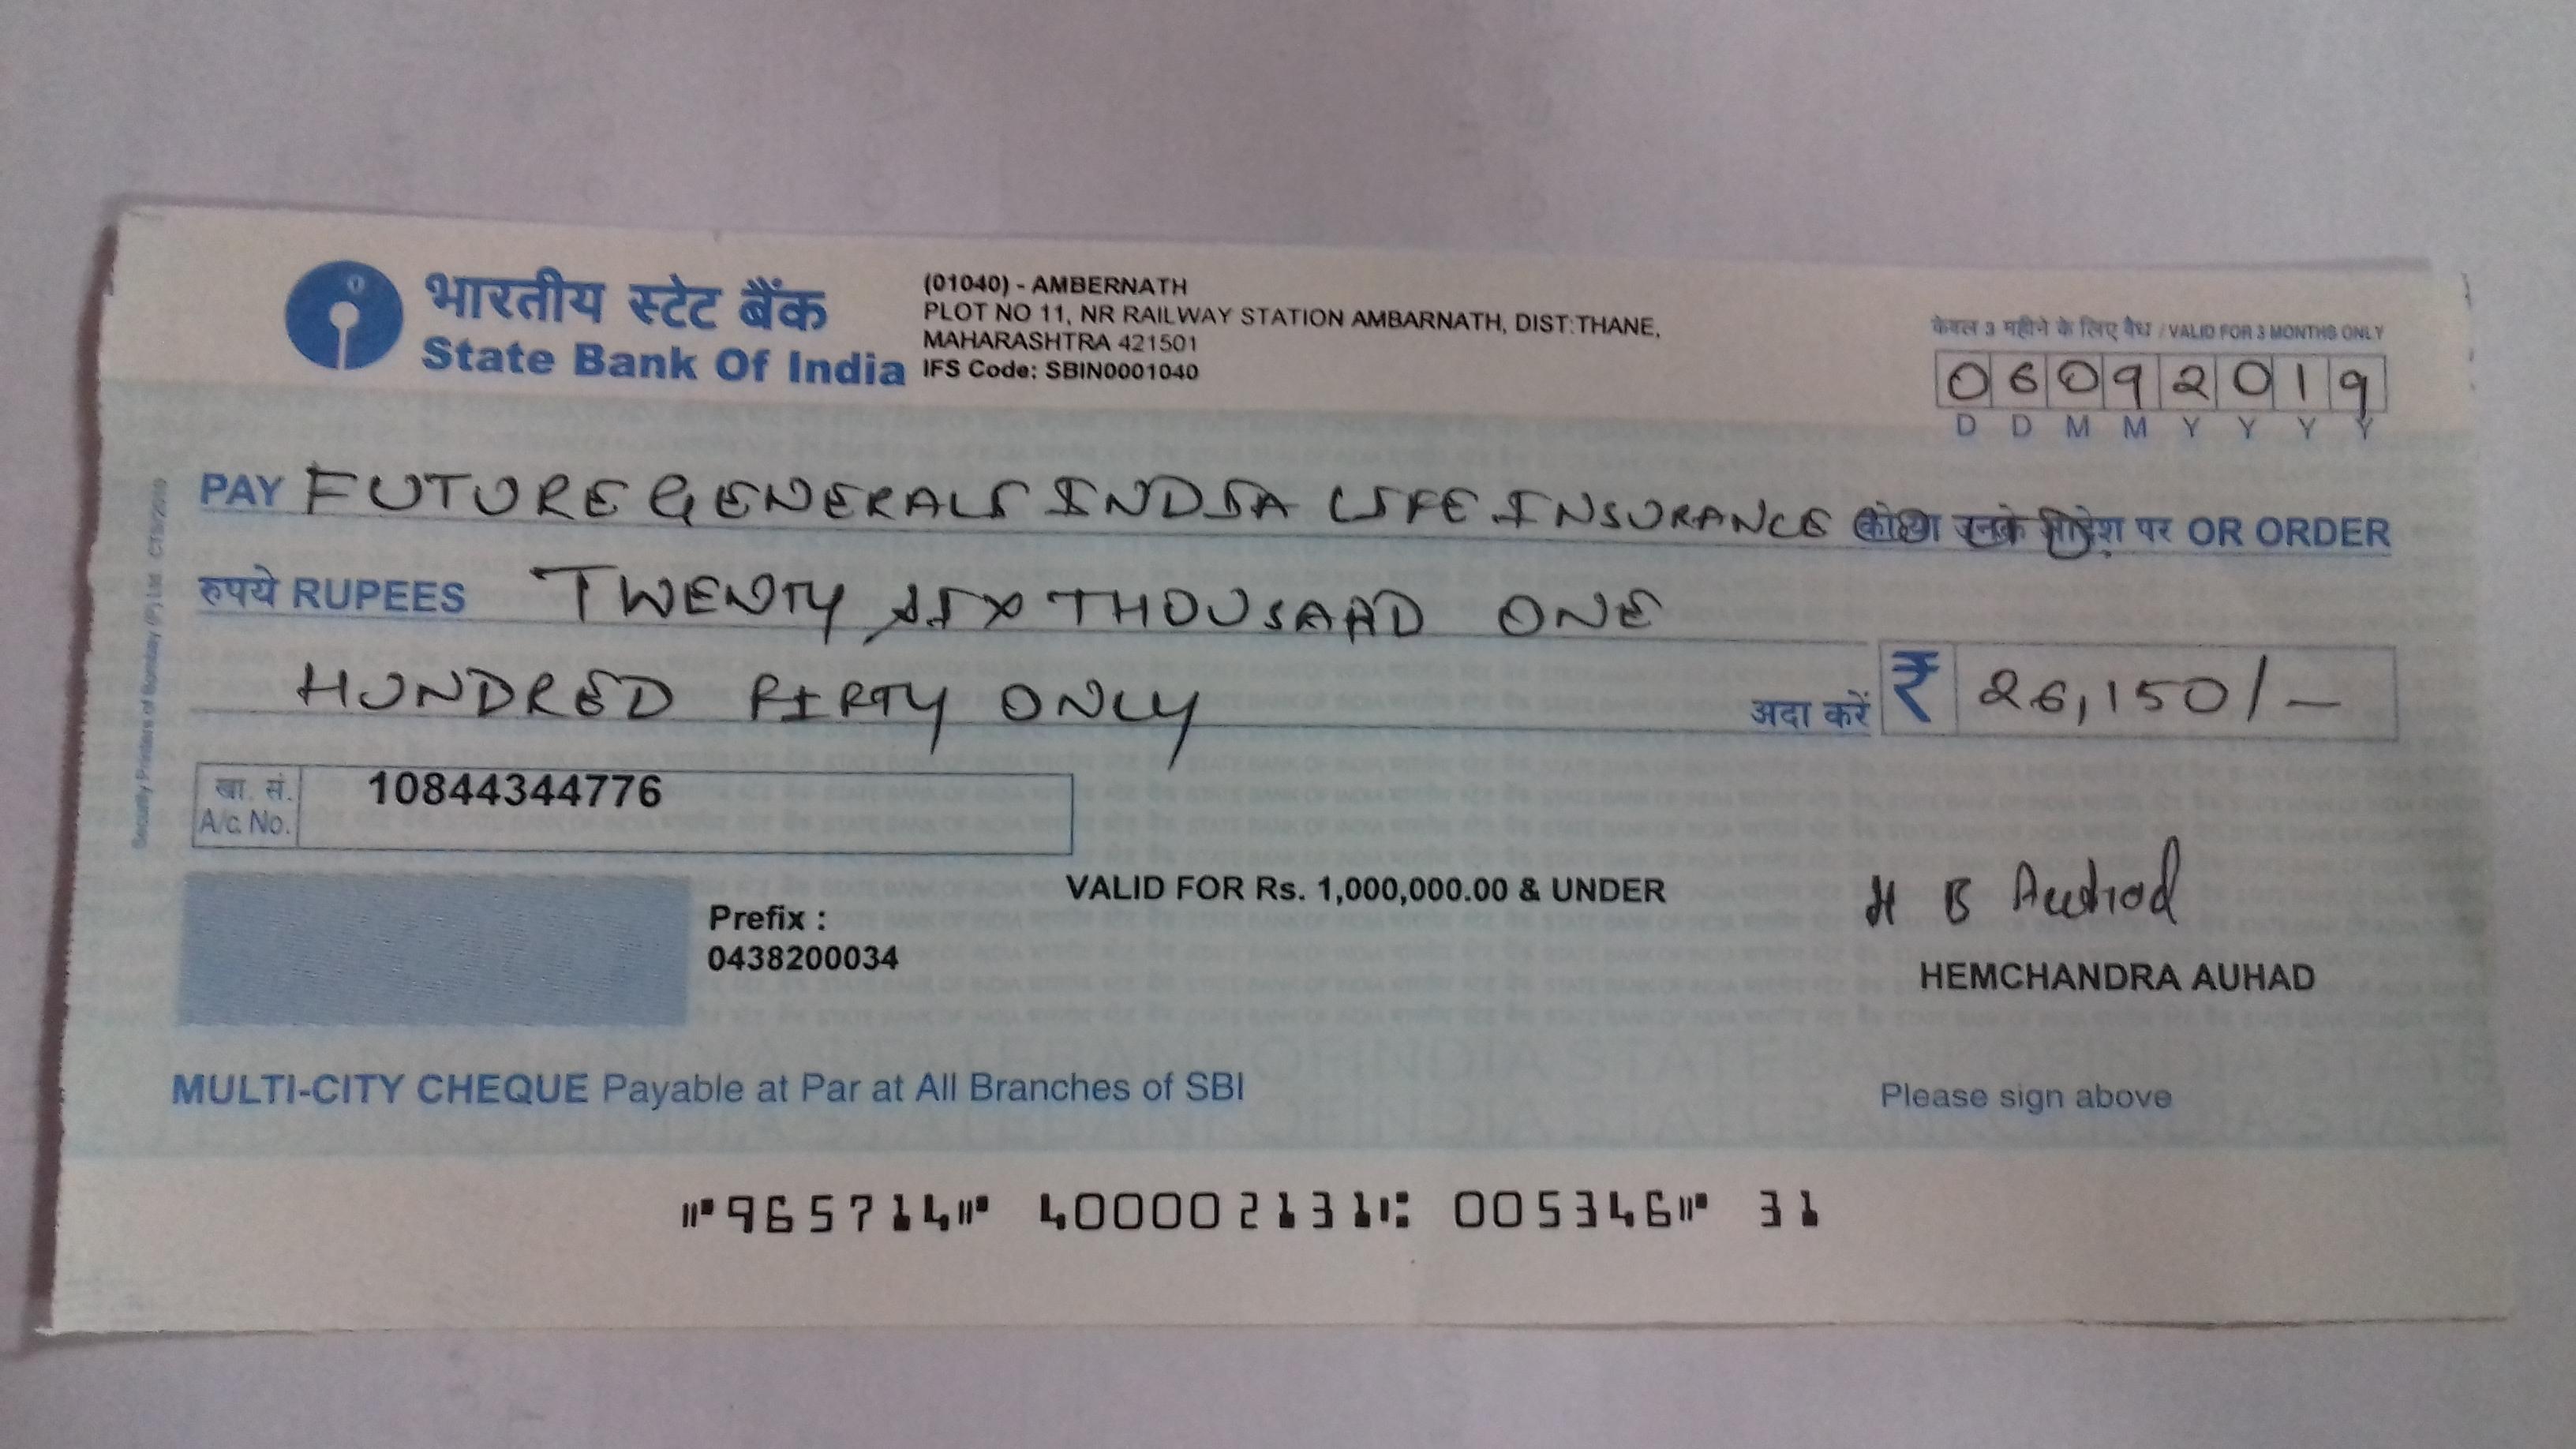 भारतीय स्टेट बैंक
State Bank Of India
(01040) - AMBERNATH
PLOT NO 11, NR RAILWAY STATION AMBARNATH, DIST:THANE,
MAHARASHTRA 421501
IFS Code: SBIN0001040
केवल 3 महीने के लिए वैध / VALID FOR 3 MONTHS ONLY
06092019
D D M M Y Y Y Y
PAY FUTURE GENERALI INDIA LIFE INSURANCE उनके पर OR ORDER
रुपये RUPEES TWENTY SIX THOUSAND ONE
HUNDRED FIFTY ONLY अदा करें ₹ 26,150/-
खा. सं.
A/c. No. 10844344776
VALID FOR Rs. 1,000,000.00 & UNDER
Prefix :
0438200034
H B Auhad
HEMCHANDRA AUHAD
MULTI-CITY CHEQUE Payable at Par at All Branches of SBI
Please sign above
⑈965714⑈ 400002131⑆ 005346⑈ 31